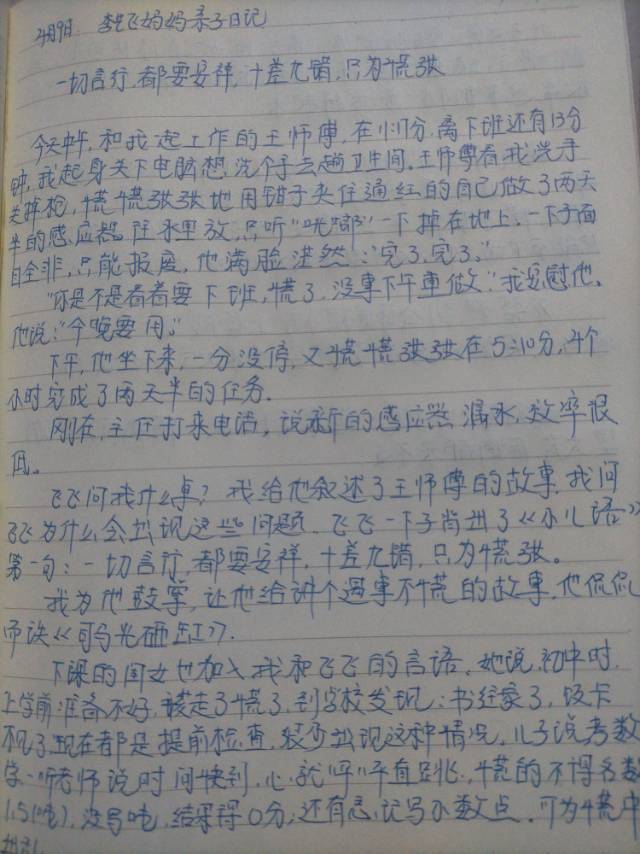 4月9日 李飞妈妈亲子日记
一切言行,都要安祥,十差九错,只为慌张
今天中午,和我一起工作的王师傅,在 离下班还有13分
钟,我起身关下电脑想洗个手去趟卫生间。王师傅看我洗手
慌慌张张地用钳子夹住通红的自己做了两天
半的感应器往水里放,只听"咣啷"一下掉在地上,一下子面
目全非,只能报废,他满脸茫然:"完了,完了。"
"你是不是看着要下班,慌了,没事下午重做。"我安慰他。
他说:"今晚要用。"
下午,他坐下来,一分没停,又慌慌张张在5:10分,4个
小时完成了两天半的任务。
刚在,主任打来电话,说新的感应器漏水,效率很
低。
飞飞问我什么事?我给他叙述了王师傅的故事,我问
飞飞为什么会出现这些问题,飞飞一下子背出了《小儿语》
第一句:一切言行,都要安祥,十差九错,只为慌张。
我为他鼓掌,让他给讲个遇事不慌的故事,他侃侃
而谈《司马光砸缸》。
下课的闺女也加入我和飞飞的言语,她说,初中时,
上学前准备不好,该走了慌了,到学校发现:书 了,饭卡
了现在都是提前检查,很少出现这种情况,儿子说考数
学,听老师说时间快到,心就呯呯直跳,慌的不得
1.5(吨),没写吨,结果得0分,还有忘记写小数点,